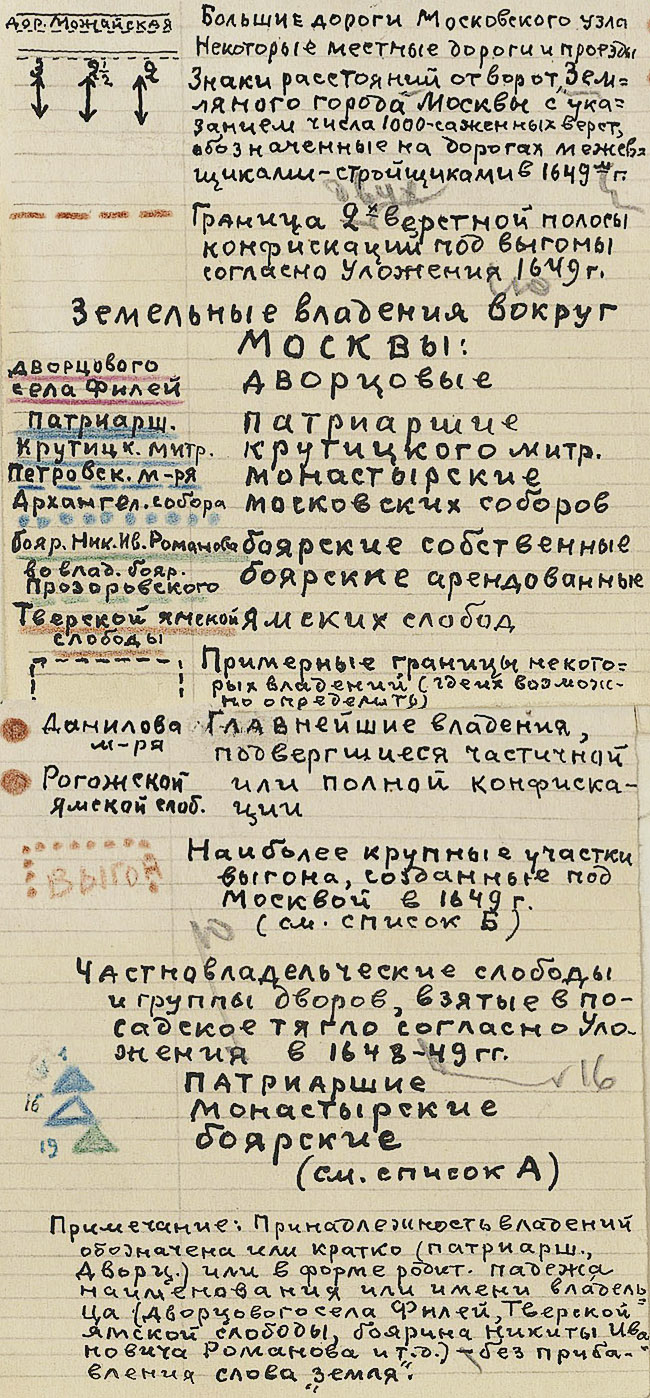 дор. Можайская Большие дороги Московского узла
Некоторые местные дороги и проезды
3 2½ 2 Знаки расстояний от ворот "Зем=
ляного города" Москвы с ука=
занием числа 1000-саженных верст,
обозначенные на дорогах межев=
щиками-стройщиками в 1649 г.
двух
Граница 2х верстной полосы
конфискаций под выгоны
согласно Уложения 1649 г.
Земельные владения вокруг
Москвы:
дворцового
села Филей дворцовые
Патриарш. патриаршие
Крутицк. митр. крутицкого митр.
Петровск. м-ря монастырские
Архангел. собора московских соборов
бояр. Ник. Ив. Романова боярские собственные
во влад. бояр.
Прозоровского боярские арендованные
Тверской ямской Ямских слобод
слободы
Примерные границы некото=
рых владений (где их возмож-
но определить)
Данилова Главнейшие владения,
м-ря подвергшиеся частичной
Рогожской или полной конфиска-
ямской слоб. ции
Наиболее крупные участки
выгон выгона, созданные под
Москвой в 1649 г.
(см. список Б)
Частновладельческие слободы
и группы дворов, взятые в по-
садское тягло согласно Уло-
жения в 1648-49 гг.
1 патриаршие 16
16 монастырские
19 боярские
(см. список А)
Примечание: Принадлежность владений
обозначена или кратко (патриарш.,
Дворц.) или в форме родит. падежа
наименования или имени владель=
ца (Дворцового села Филей, Тверской
ямской слободы, боярина Никиты Ива
новича Романова и т.д.) - без приба-
вления слова "земля".